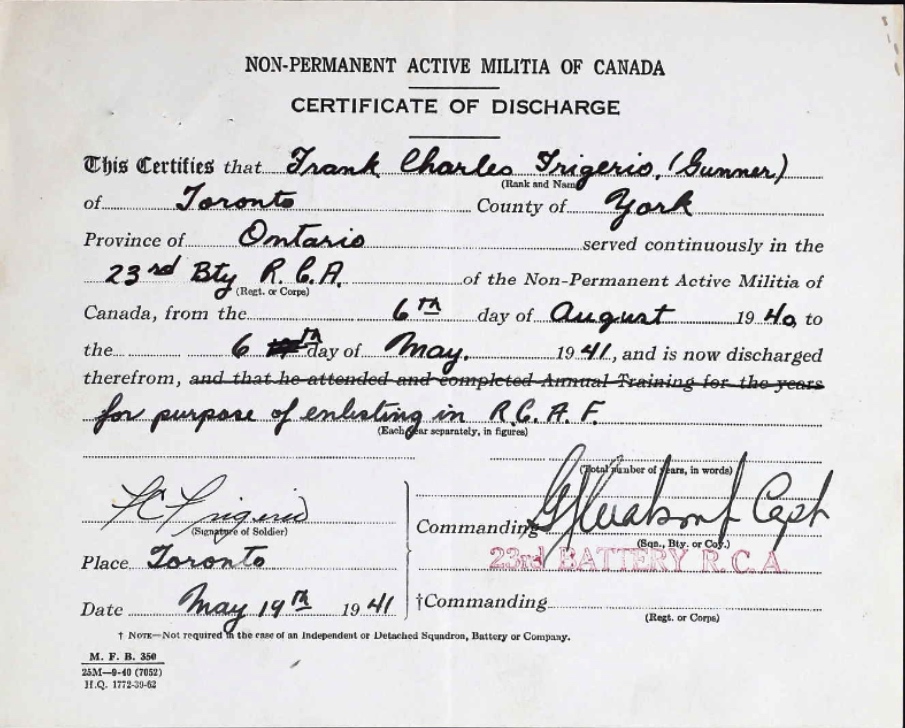 NON-PERMANENT ACTIVE MILITIA OF CANADA
CERTIFICATE OF DISCHARGE
This Certifies that Frank Charles Frigerio. (Gunner)
(Rank and Name)
of Toronto County of York
Province of Ontario served continuously in the
23rd Bty R.C.A. of the Non-Permanent Active Militia of
(Regt. or Corps)
Canada, from the 6th day of August 1940, to
the 6 th day of May. 1941, and is now discharged
therefrom, and that he attended and completed Annual Training for the years
for purpose of enlisting in R.C.A.F.
(Each year separately, in figures)
(Total number of years, in words)
F C Frigerio
(Signature of Soldier)
Commanding Capt
(Sqn., Bty. or Coy.)
Place Toronto
23rd BATTERY R.C.A
Date May 19th 1941
†Commanding
(Regt. or Corps)
† NOTE—Not required in the case of an Independent or Detached Squadron, Battery or Company.
M. F. B. 350
25M—9-40 (7052)
H.Q. 1772-39-62